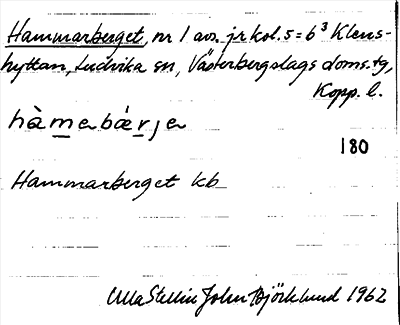 Hammarberget, nr 1 av. jr kol. 5 = 6³ Klens-
hyttan, Ludvika sn, Västerbergslags doms. tg,
Kopp. l.
hàmebärje
180
Hammarberget kb
Ulla Stellin John Björklund 1962